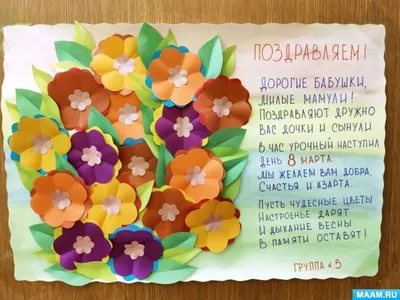 ПОЗДРАВЛЯЕМ!
ДОРОГИЕ БАБУШКИ,
МИЛЫЕ МАМУЛИ!
ПОЗДРАВЛЯЮТ ДРУЖНО
ВАС ДОЧКИ И СЫНУЛИ
В ЧАС УРОЧНЫЙ НАСТУПИЛ
ДЕНЬ 8 МАРТА.
МЫ ЖЕЛАЕМ ВАМ ДОБРА,
СЧАСТЬЯ И АЗАРТА.
ПУСТЬ ЧУДЕСНЫЕ ЦВЕТЫ
НАСТРОЕНЬЕ ДАРЯТ
И ДЫХАНИЕ ВЕСНЫ
В ПАМЯТИ ОСТАВЯТ!
ГРУППА №5
MAAM.RU